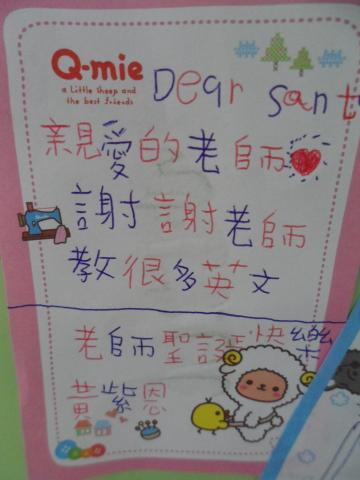 Q-mie
a little sheep and
the best friends
Dear Sant
親愛的老師
謝謝老師
教很多英文
老師聖誕快樂
黃紫恩